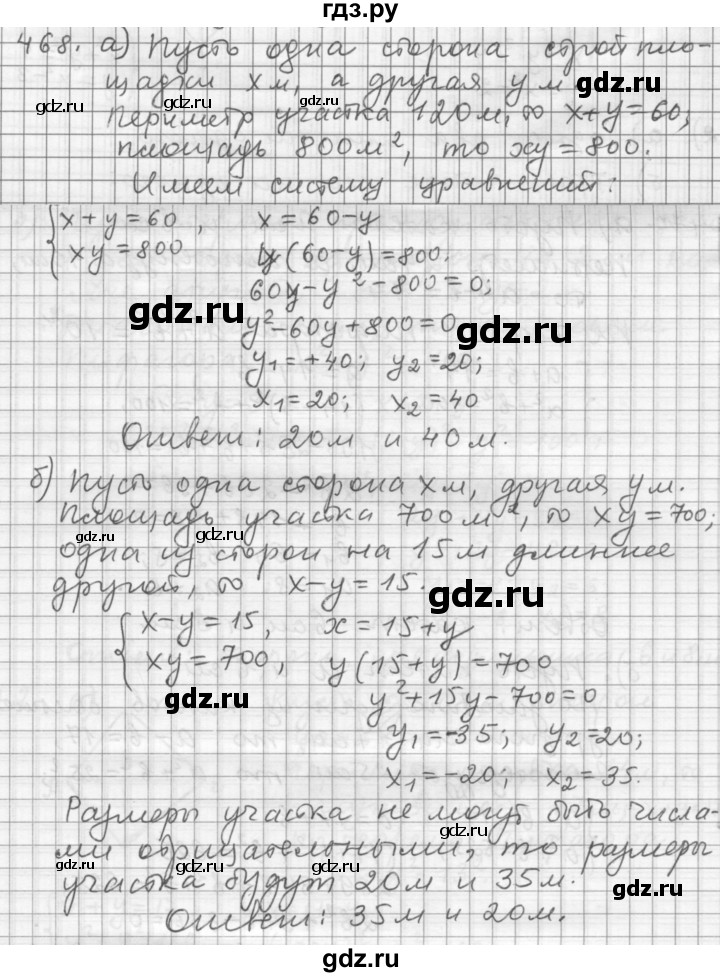 гдз.ру
468. а) Пусть одна сторона стройпло-
щадки x м, а другая y м
gdz.ru gdz.ru gdz.ru
периметр участка 120м, то x+y=60;
площадь 800м², то xy=800.
Имеем систему уравнений:
{x+y=60, x=60-y
xy=800 y(60-y)=800.
60y-y²-800=0;
gdz.ru
y²-60y+800=0
gdz.ru
y₁=+40; y₂=20;
x₁=20; x₂=40
Ответ: 20м и 40м.
б) Пусть одна сторона x м, другая y м.
Площадь участка 700м², то xy=700;
gdz.ru gdz.ru gdz.ru
одна из сторон на 15м длиннее
другой, то x-y=15.
gdz.ru
{x-y=15, x=15+y
xy=700, y(15+y)=700
gdz.ru
y²+15y-700=0
y₁=-35; y₂=20;
x₁=-20; x₂=35.
Размеры участка не могут быть числа-
gdz.ru
ми отрицательными, то размеры
gdz.ru gdz.ru gdz.ru
участка будут 20м и 35м.
Ответ: 35м и 20м.
gdz.ru